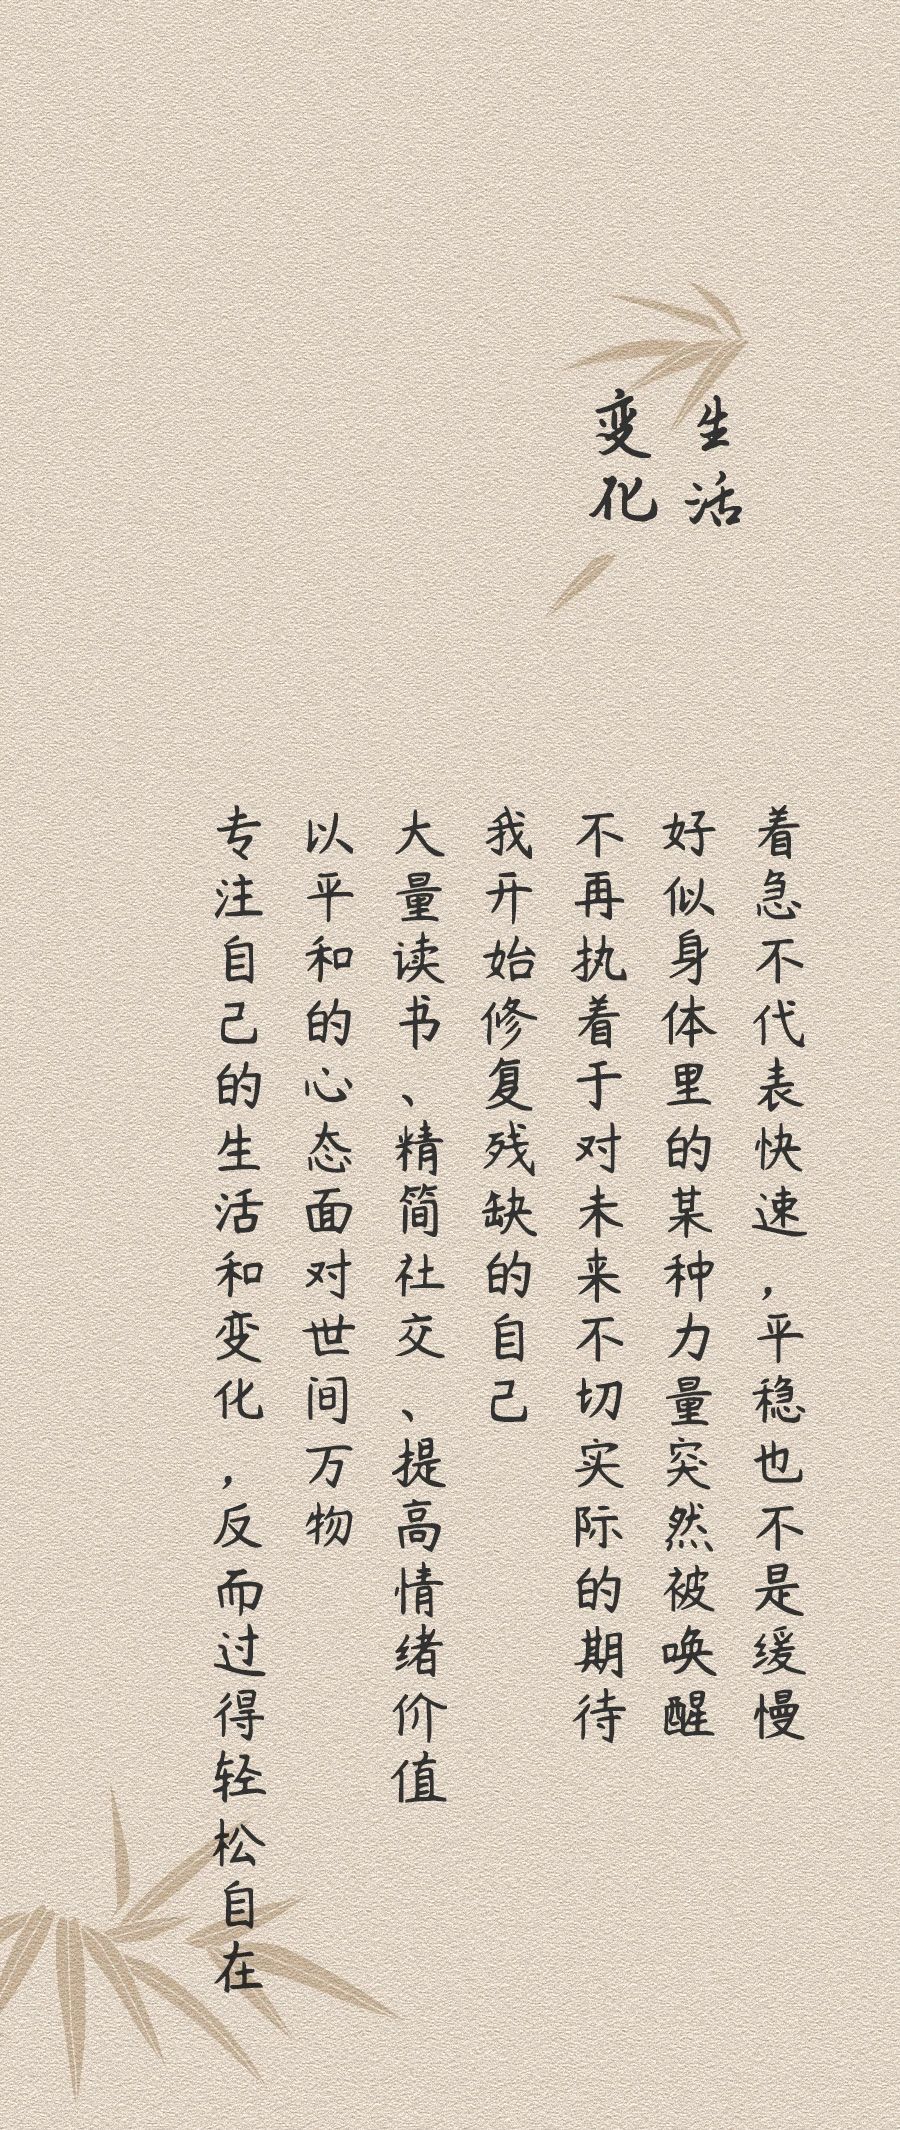 生活
变化
着急不代表快速，平稳也不是缓慢
好似身体里的某种力量突然被唤醒
不再执着于对未来不切实际的期待
我开始修复残缺的自己
大量读书、精简社交、提高情绪价值
以平和的心态面对世间万物
专注自己的生活和变化，反而过得轻松自在